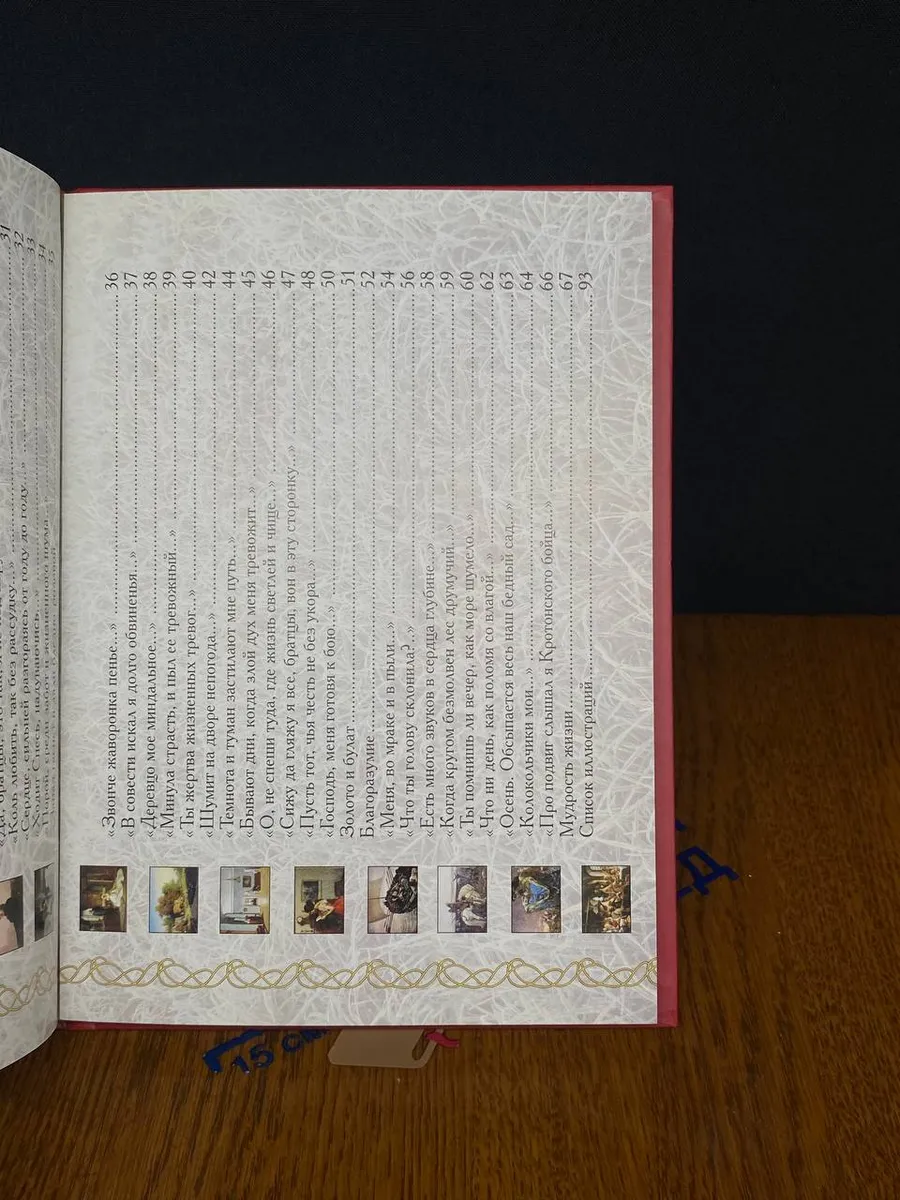 «Коль любить, так без рассудку...» 32
«Сердце, сильней разгораясь от году до году...» 33
«Ходит Спесь, надуваючись...» 34
«Звонче жаворонка пенье...» 36
«В совести искал я долго обвиненья...» 37
«Деревцо мое миндальное...» 38
«Минула страсть, и пыл ее тревожный...» 39
«Ты жертва жизненных тревог...» 40
«Шумит на дворе непогода...» 42
«Темнота и туман застилают мне путь...» 44
«Бывают дни, когда злой дух меня тревожит...» 45
«О, не спеши туда, где жизнь светлей и чище...» 46
«Сижу да гляжу я все, братцы, вон в эту сторонку...» 47
«Пусть тот, чья честь не без укора...» 48
«Господь, меня готовя к бою...» 50
Золото и булат 51
Благоразумие 52
«Меня, во мраке и в пыли...» 54
«Что ты голову склонила?..» 56
«Есть много звуков в сердца глубине...» 58
«Когда кругом безмолвен лес дремучий...» 59
«Ты помнишь ли вечер, как море шумело...» 60
«Что ни день, как поломя со влагой...» 62
«Осень. Обсыпается весь наш бедный сад...» 63
«Колокольчики мои...» 64
«Про подвиг слышал я Кротонского бойца...» 66
Мудрость жизни 67
Список иллюстраций 93
15 см